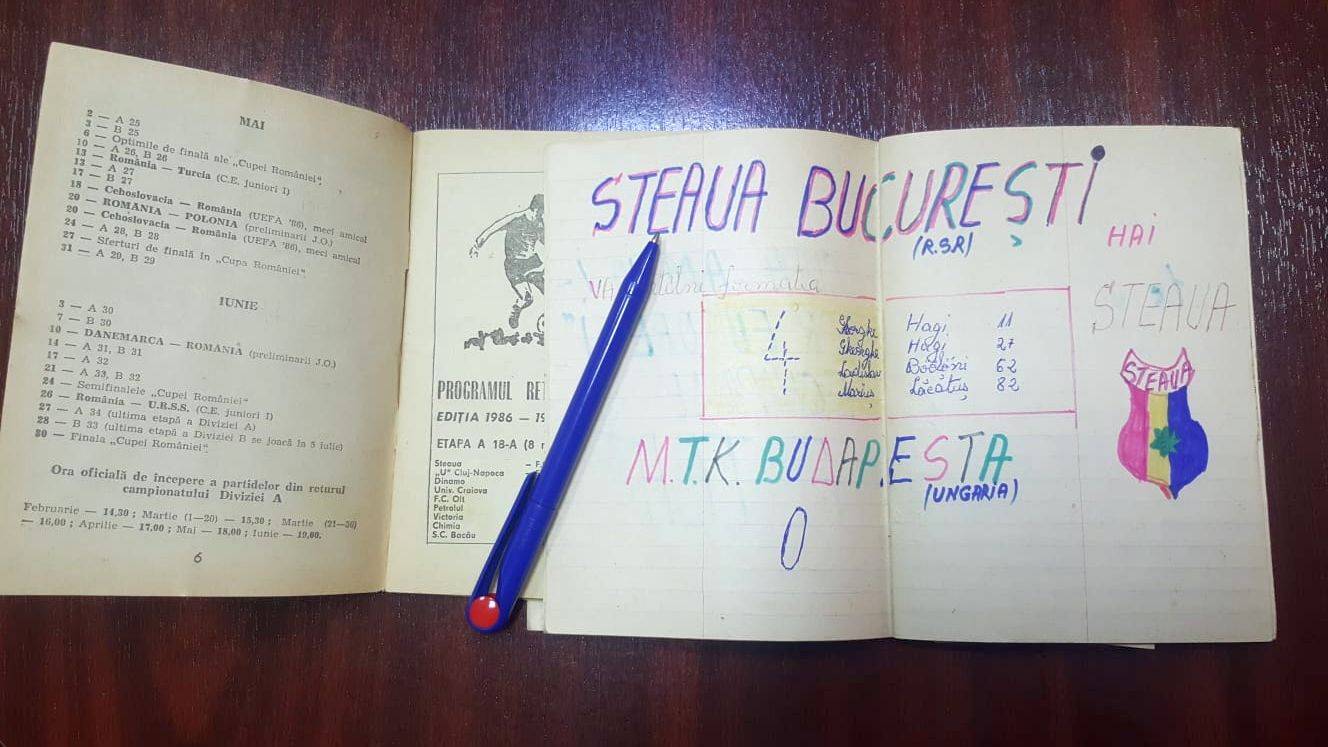 MAI
2 — A 25
3 — B 25
6 — Optimile de finală ale „Cupei României”.
10 — A 26, B 26
13 — România — Turcia (C.E. juniori I)
13 — A 27
17 — B 27
18 — Cehoslovacia — România (UEFA '86), meci amical
20 — ROMANIA — POLONIA (preliminarii J.O.)
20 — Cehoslovacia — România (UEFA '86), meci amical
24 — A 28, B 28
27 — Sferturi de finală în „Cupa României”.
31 — A 29, B 29
IUNIE
3 — A 30
7 — B 30
10 — DANEMARCA — ROMANIA (preliminarii J.O.)
14 — A 31, B 31
17 — A 32
21 — A 33, B 32
24 — Semifinalele „Cupei României”
26 — România — U.R.S.S. (C.E. juniori I)
27 — A 34 (ultima etapă a Diviziei A)
28 — B 33 (ultima etapă a Diviziei B se joacă la 5 iulie)
30 — Finala „Cupei României”.
Ora oficială de începere a partidelor din returul
campionatului Diviziei A
Februarie — 14,30 ; Martie (1—20) — 15,30 ; Martie (21—30)
— 16,00 ; Aprilie — 17,00 ; Mai — 18,00 ; Iunie — 19,00.
6
PROGRAMUL RE
EDIȚIA 1986 — 19
ETAPA A 18-A (8
Steaua — F.
"U" Cluj-Napoca
Dinamo
Univ. Craiova
F.C. Olt
Petrolul
Victoria
Chimia
S.C. Bacău
STEAUA BUCUREȘTI
(R.SR)
VA formatia
4
Gheorghe Hagi 11
Gheorghe Hagi 27
Ladislau Bölöni 62
Marius Lăcătuș 82
M.T.K. BUDAP.ESTA
(UNGARIA)
0
HAI
STEAUA
STEAUA